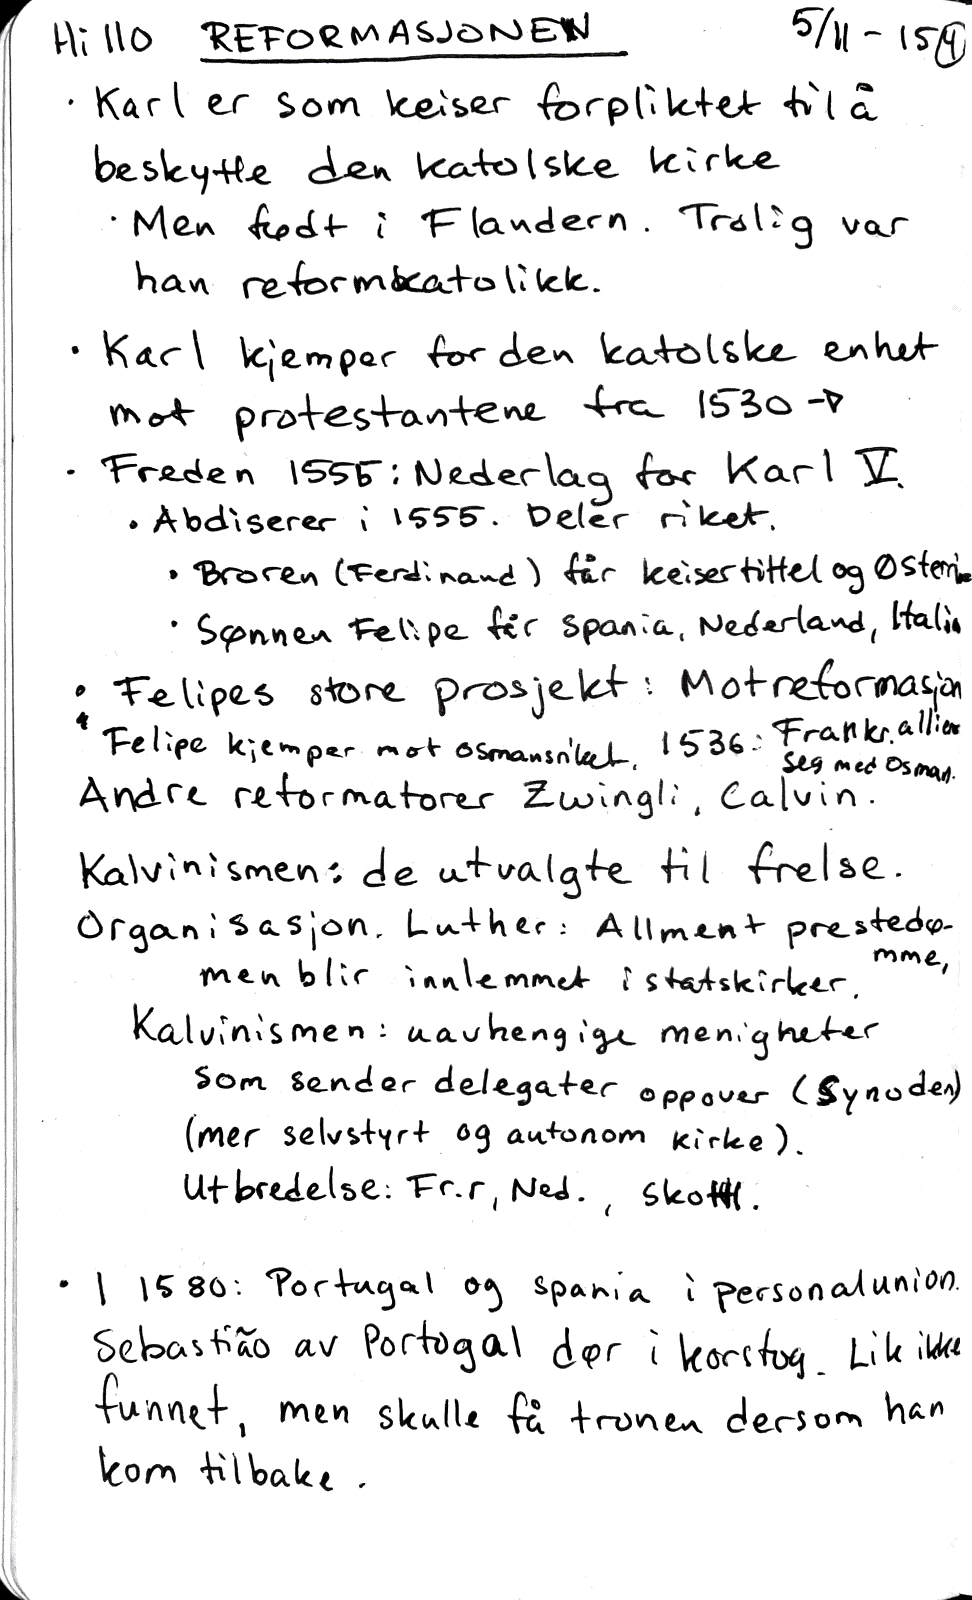 Hi 110 REFORMASJONEN 5/11-15 4
· Karl er som keiser forpliktet til å
beskytte den katolske kirke
· Men født i Flandern. Trolig var
han reformkatolikk.
· Karl kjemper for den katolske enhet
mot protestantene fra 1530 →
· Freden 1555: Nederlag for Karl V.
· Abdiserer i 1555. Deler riket.
· Broren (Ferdinand) får keisertittel og Østerri
· Sønnen Felipe får Spania, Nederland, Italia
· Felipes store prosjekt: Motreformasjon
· Felipe kjemper mot Osmansriket. 1536: Frankr. allier
seg med Osman.
Andre reformatorer Zwingli, Calvin.
Kalvinismen: de utvalgte til frelse.
Organisasjon. Luther: Allment prestedø-
mme,
men blir innlemmet i statskirker.
Kalvinismen: uavhengige menigheter
som sender delegater oppover (Synoden)
(mer selvstyrt og autonom kirke).
Utbredelse: Fr.r, Ned., Skottl.
· I 1580: Portugal og Spania i personalunion.
Sebastião av Portogal dør i korstog. Lik ikke
funnet, men skulle få tronen dersom han
kom tilbake.